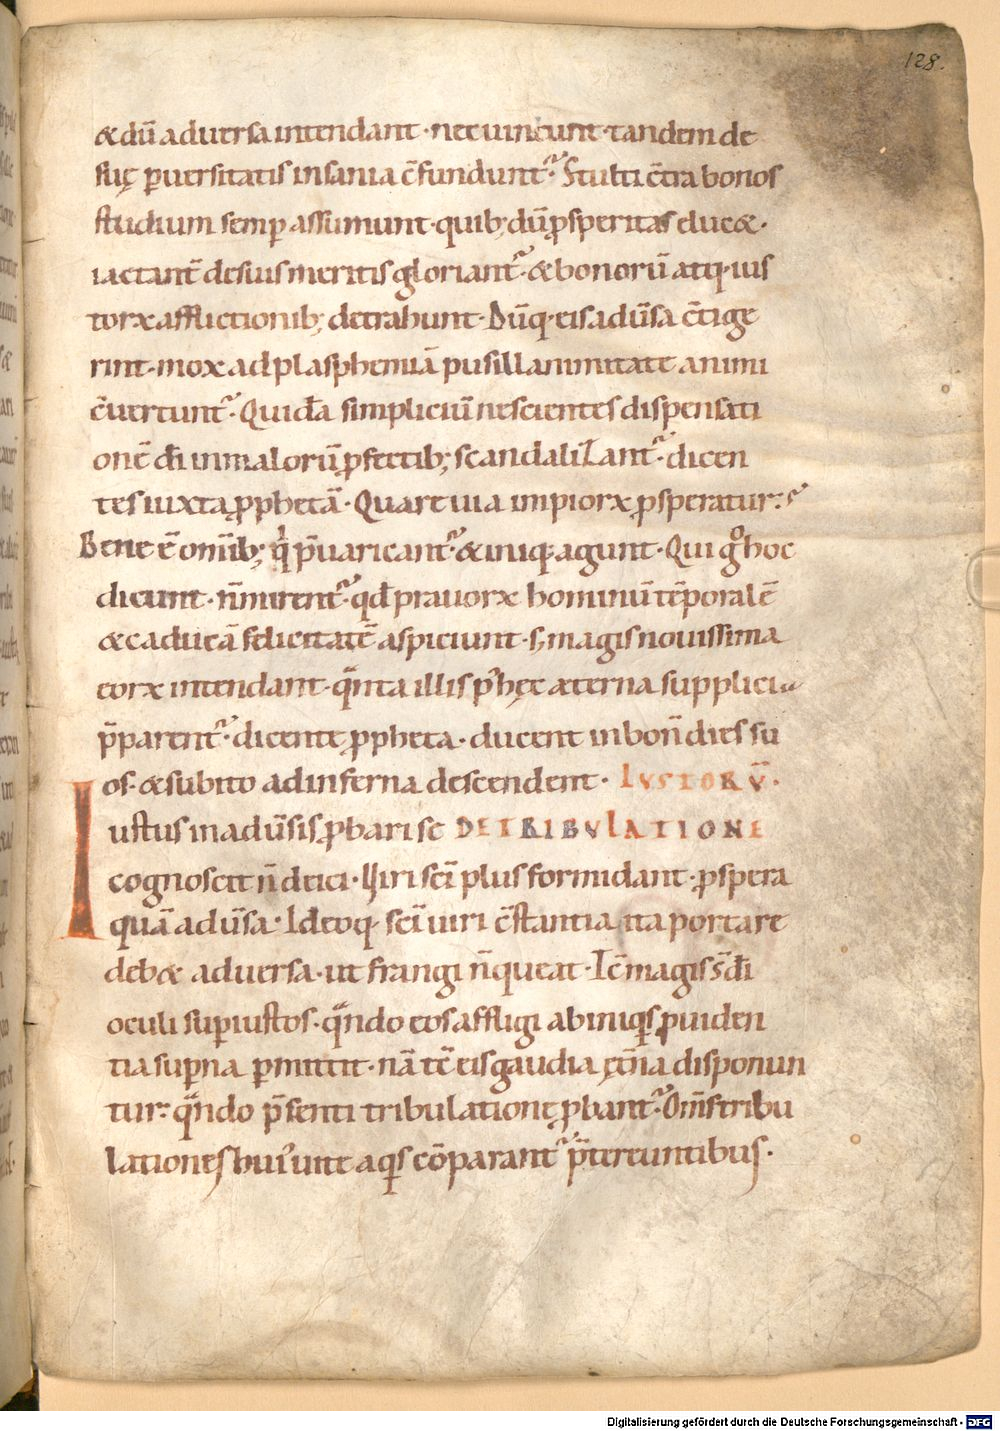 128.
&dū aduersa intendant · nec uincunt · tandem de
suę ꝑuersitatis insania c̄fundunt᷑· Stulti c̄tra bonos
studium semꝑ assumunt · quib; dū ꝓsperitas eueæ ·
iactant̄ de suis meritis gloriant᷑ · & bonorū atq· ius
toꝝ afflictionib; detrahunt · Dūq· eis adūsa c̄tige
rint · mox ad plasphemiā pusillanimitate animi
c̄uertunt᷑ · Quidā simpliciū nescientes dispensati
onē dī in malorū ꝓfectib; scandaliZant᷑ · dicen
tes iuxta ꝓphetā · Quare uia impioꝝ ꝓsperatur:
Bene ē omīb; qͥ p̄uaricant᷑ · & iniq· agunt · Qui gͦ hoc
dicunt · n̄ mirent᷑ · qđ prauoꝝ hominū tēporalē
& caducā felicitatē aspiciunt · s; magis nouissima
eoꝝ intendant · qᷓnta illis p᷒ hęc æterna supplicia
p̄parent᷑ · dicente ꝓpheta · ducent in bon̄ dies su
os · & subito ad inferna descendent · IVSTORV̄ ·
Iustus in adūsis ꝓbari se DE TRIBVLATIONE
cognoscit n̄ deici · Viri scī plus formidant · ꝓspera
quā adūsa · Ideoq· scī uiri c̄stantia ita portare
debæ aduersa · ut frangi n̄ queat · Tc̄ magis s̄ dī
oculi suꝑ iustos · qᷓndo eos affligi ab iniqͥs ꝓuiden
tia suꝑna ꝑmittit · nā tc̄ eis gaudia ęt̄na disponun
tur: qᷓndo p̄senti tribulatione ꝓbant᷑ · Om̄s tribu
lationes hui᷒ uite aqͥs cōparant᷑ p̄tereuntibus ·
Digitalisierung gefördert durch die Deutsche Forschungsgemeinschaft - DFG